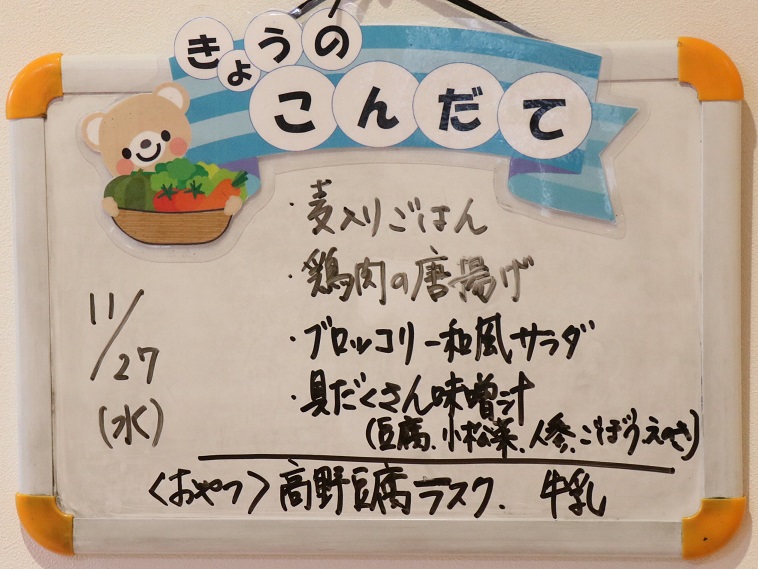 きょうの
こんだて
・麦入りごはん
・鶏肉の唐揚げ
11/27
(水)
・ブロッコリー和風サラダ
・具だくさん味噌汁
(豆腐、小松菜、人参、ごぼう、えのき)
〈おやつ〉高野豆腐ラスク、牛乳